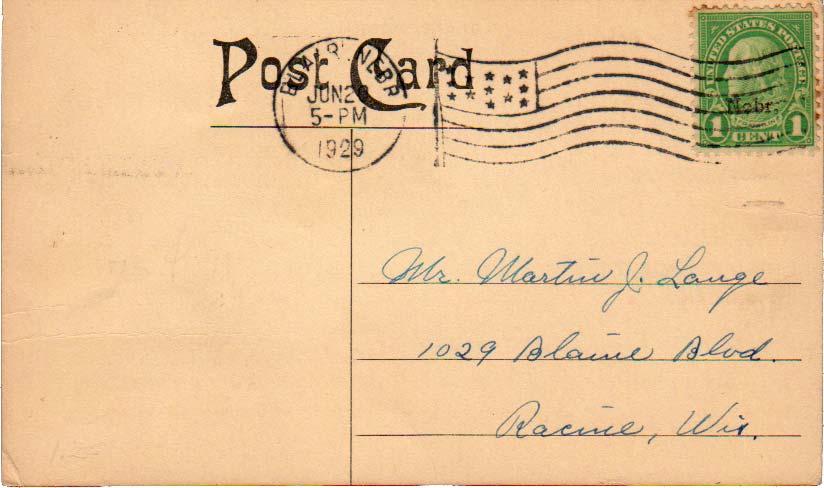 Post Card
BLAIR, NEBR
JUN 2
5-PM
1929
UNITED STATES POSTAGE
Nebr.
1 CENT 1
Mr. Martin J. Lange
1029 Blaine Blvd.
Racine, Wis.